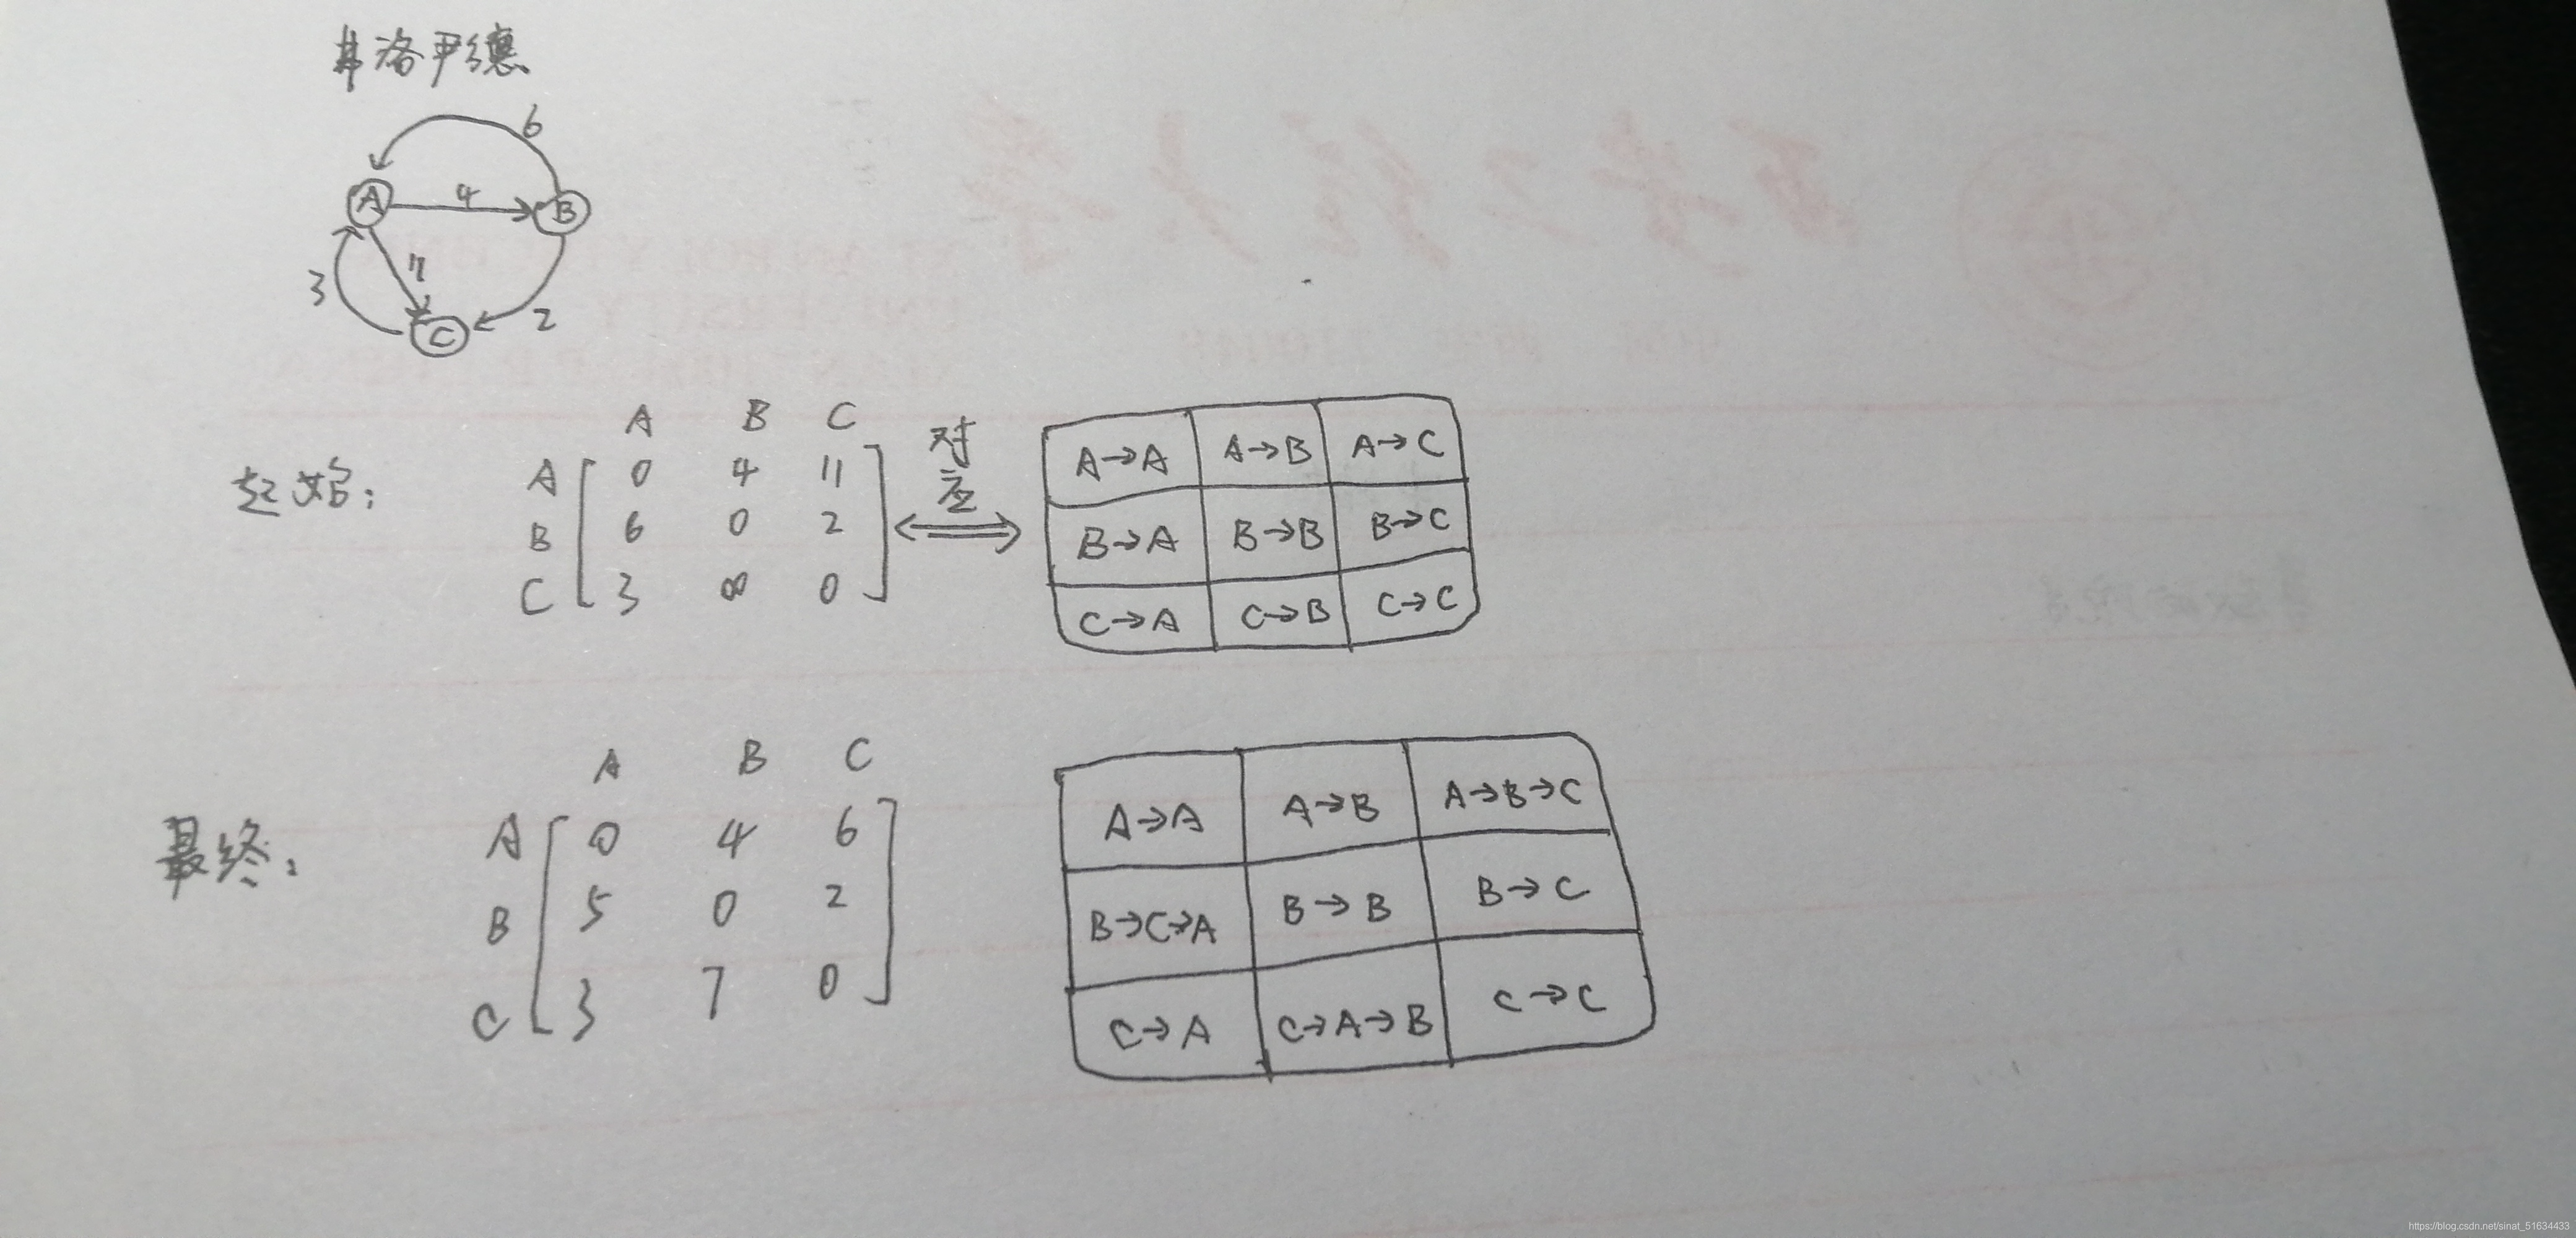 弗洛伊德
6
A 4 B
3 11 2
C
A B C
起始: A 0 4 11
B 6 0 2
C 3 ∞ 0
对应
A→A A→B A→C
B→A B→B B→C
C→A C→B C→C
A B C
最终: A 0 4 6
B 5 0 2
C 3 7 0
A→A A→B A→B→C
B→C→A B→B B→C
C→A C→A→B C→C
https://blog.csdn.net/sinat_51634433